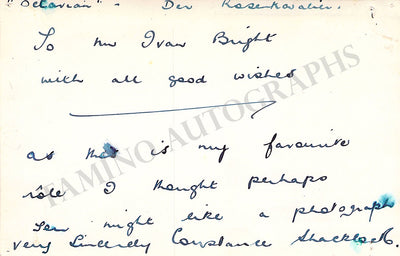 "Octavian" - Der Rosenkavalier.
To Mr Ivan Bright
with all good wishes
as this is my favourite
rôle I thought perhaps
you might like a photograph
Very Sincerely Constance Shacklock.
TAMINO AUTOGRAPHS